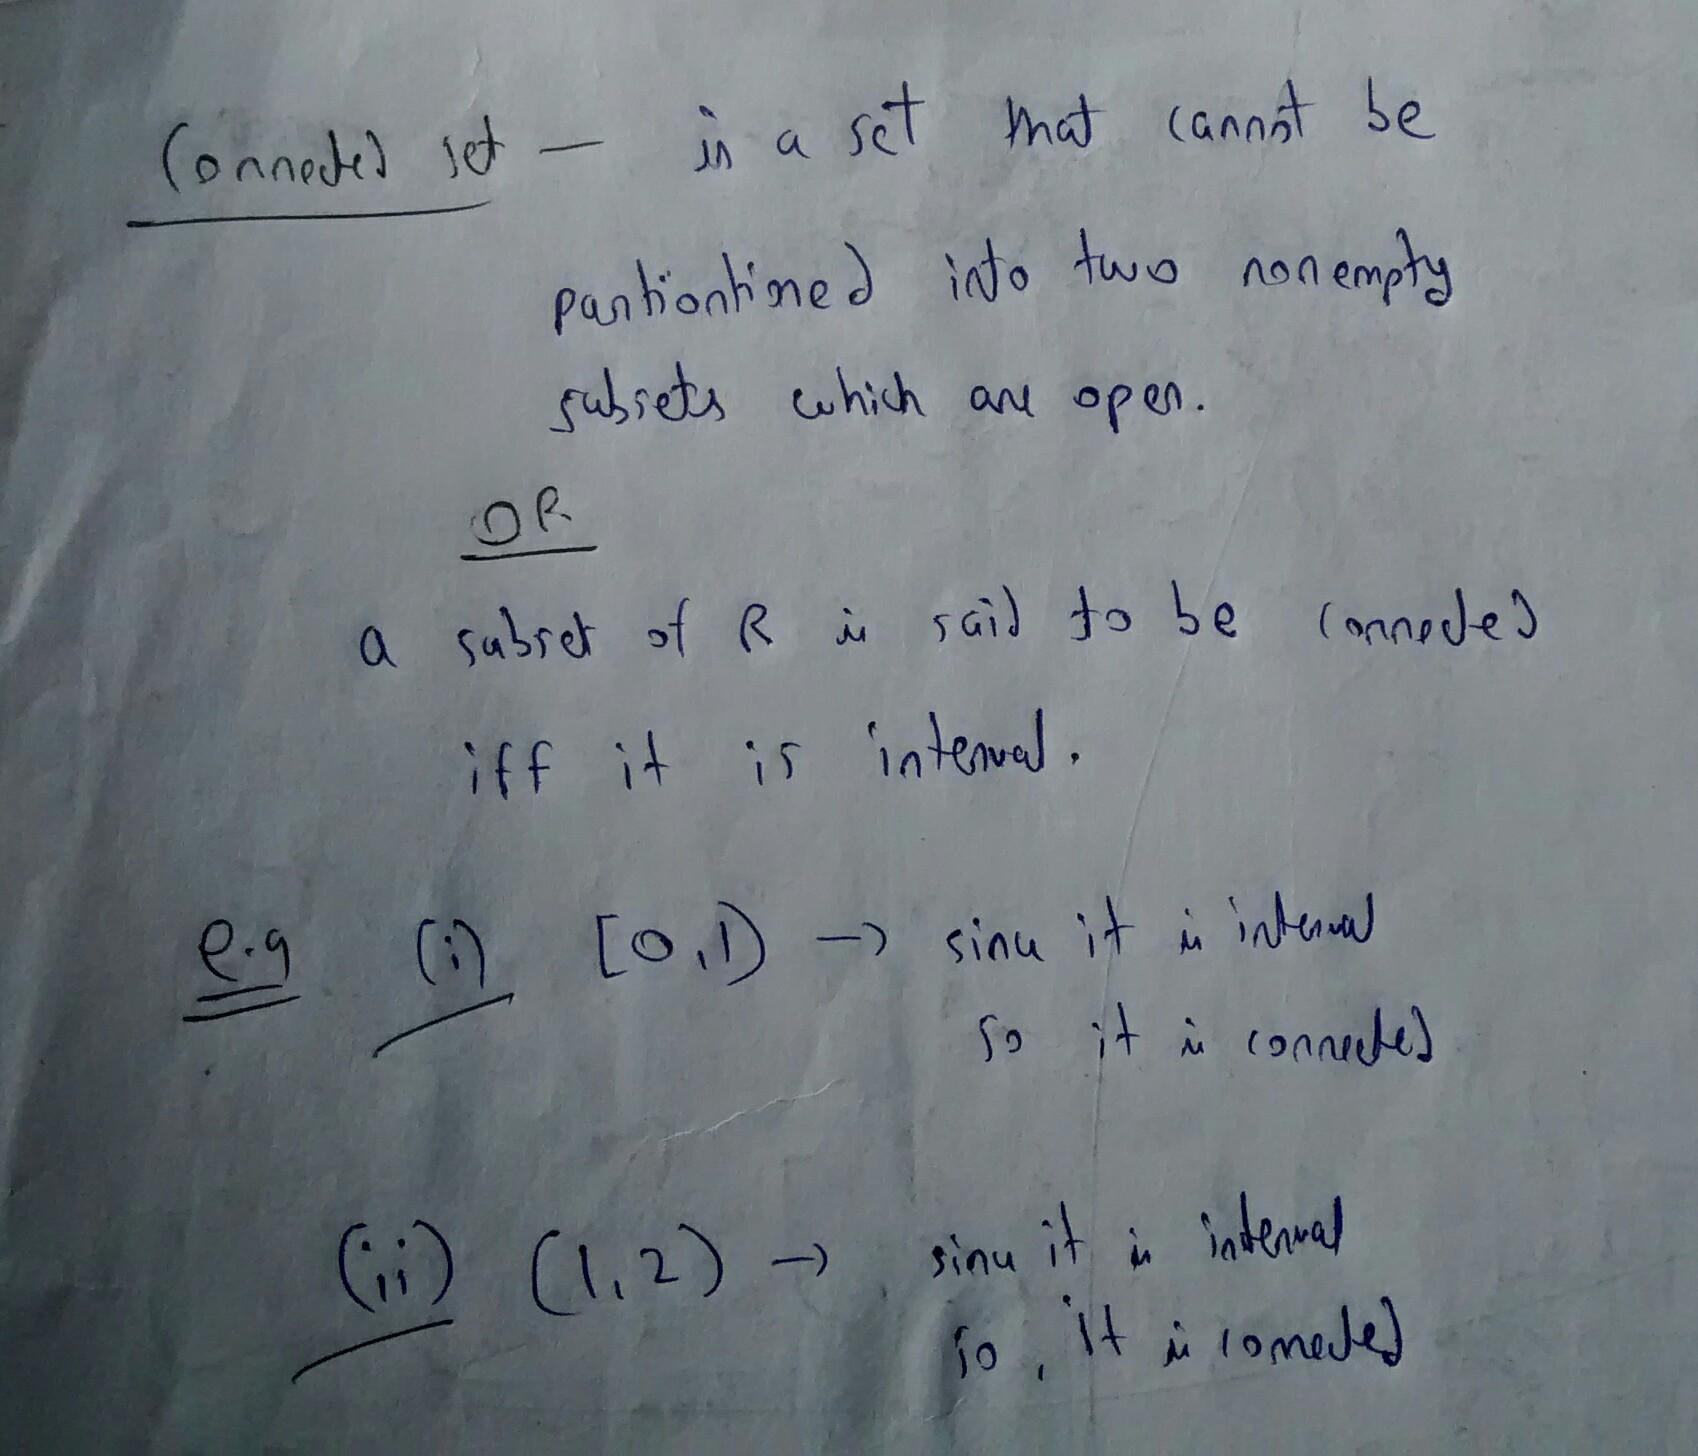 Connected set — is a set that cannot be
partiontioned into two nonempty
subsets which are open.
OR
a subset of R is said to be connected
iff it is interval.
e.g (i) [0,1) → since it is interval
so it is connected
(ii) (1,2) → since it is interval
so, it is connected